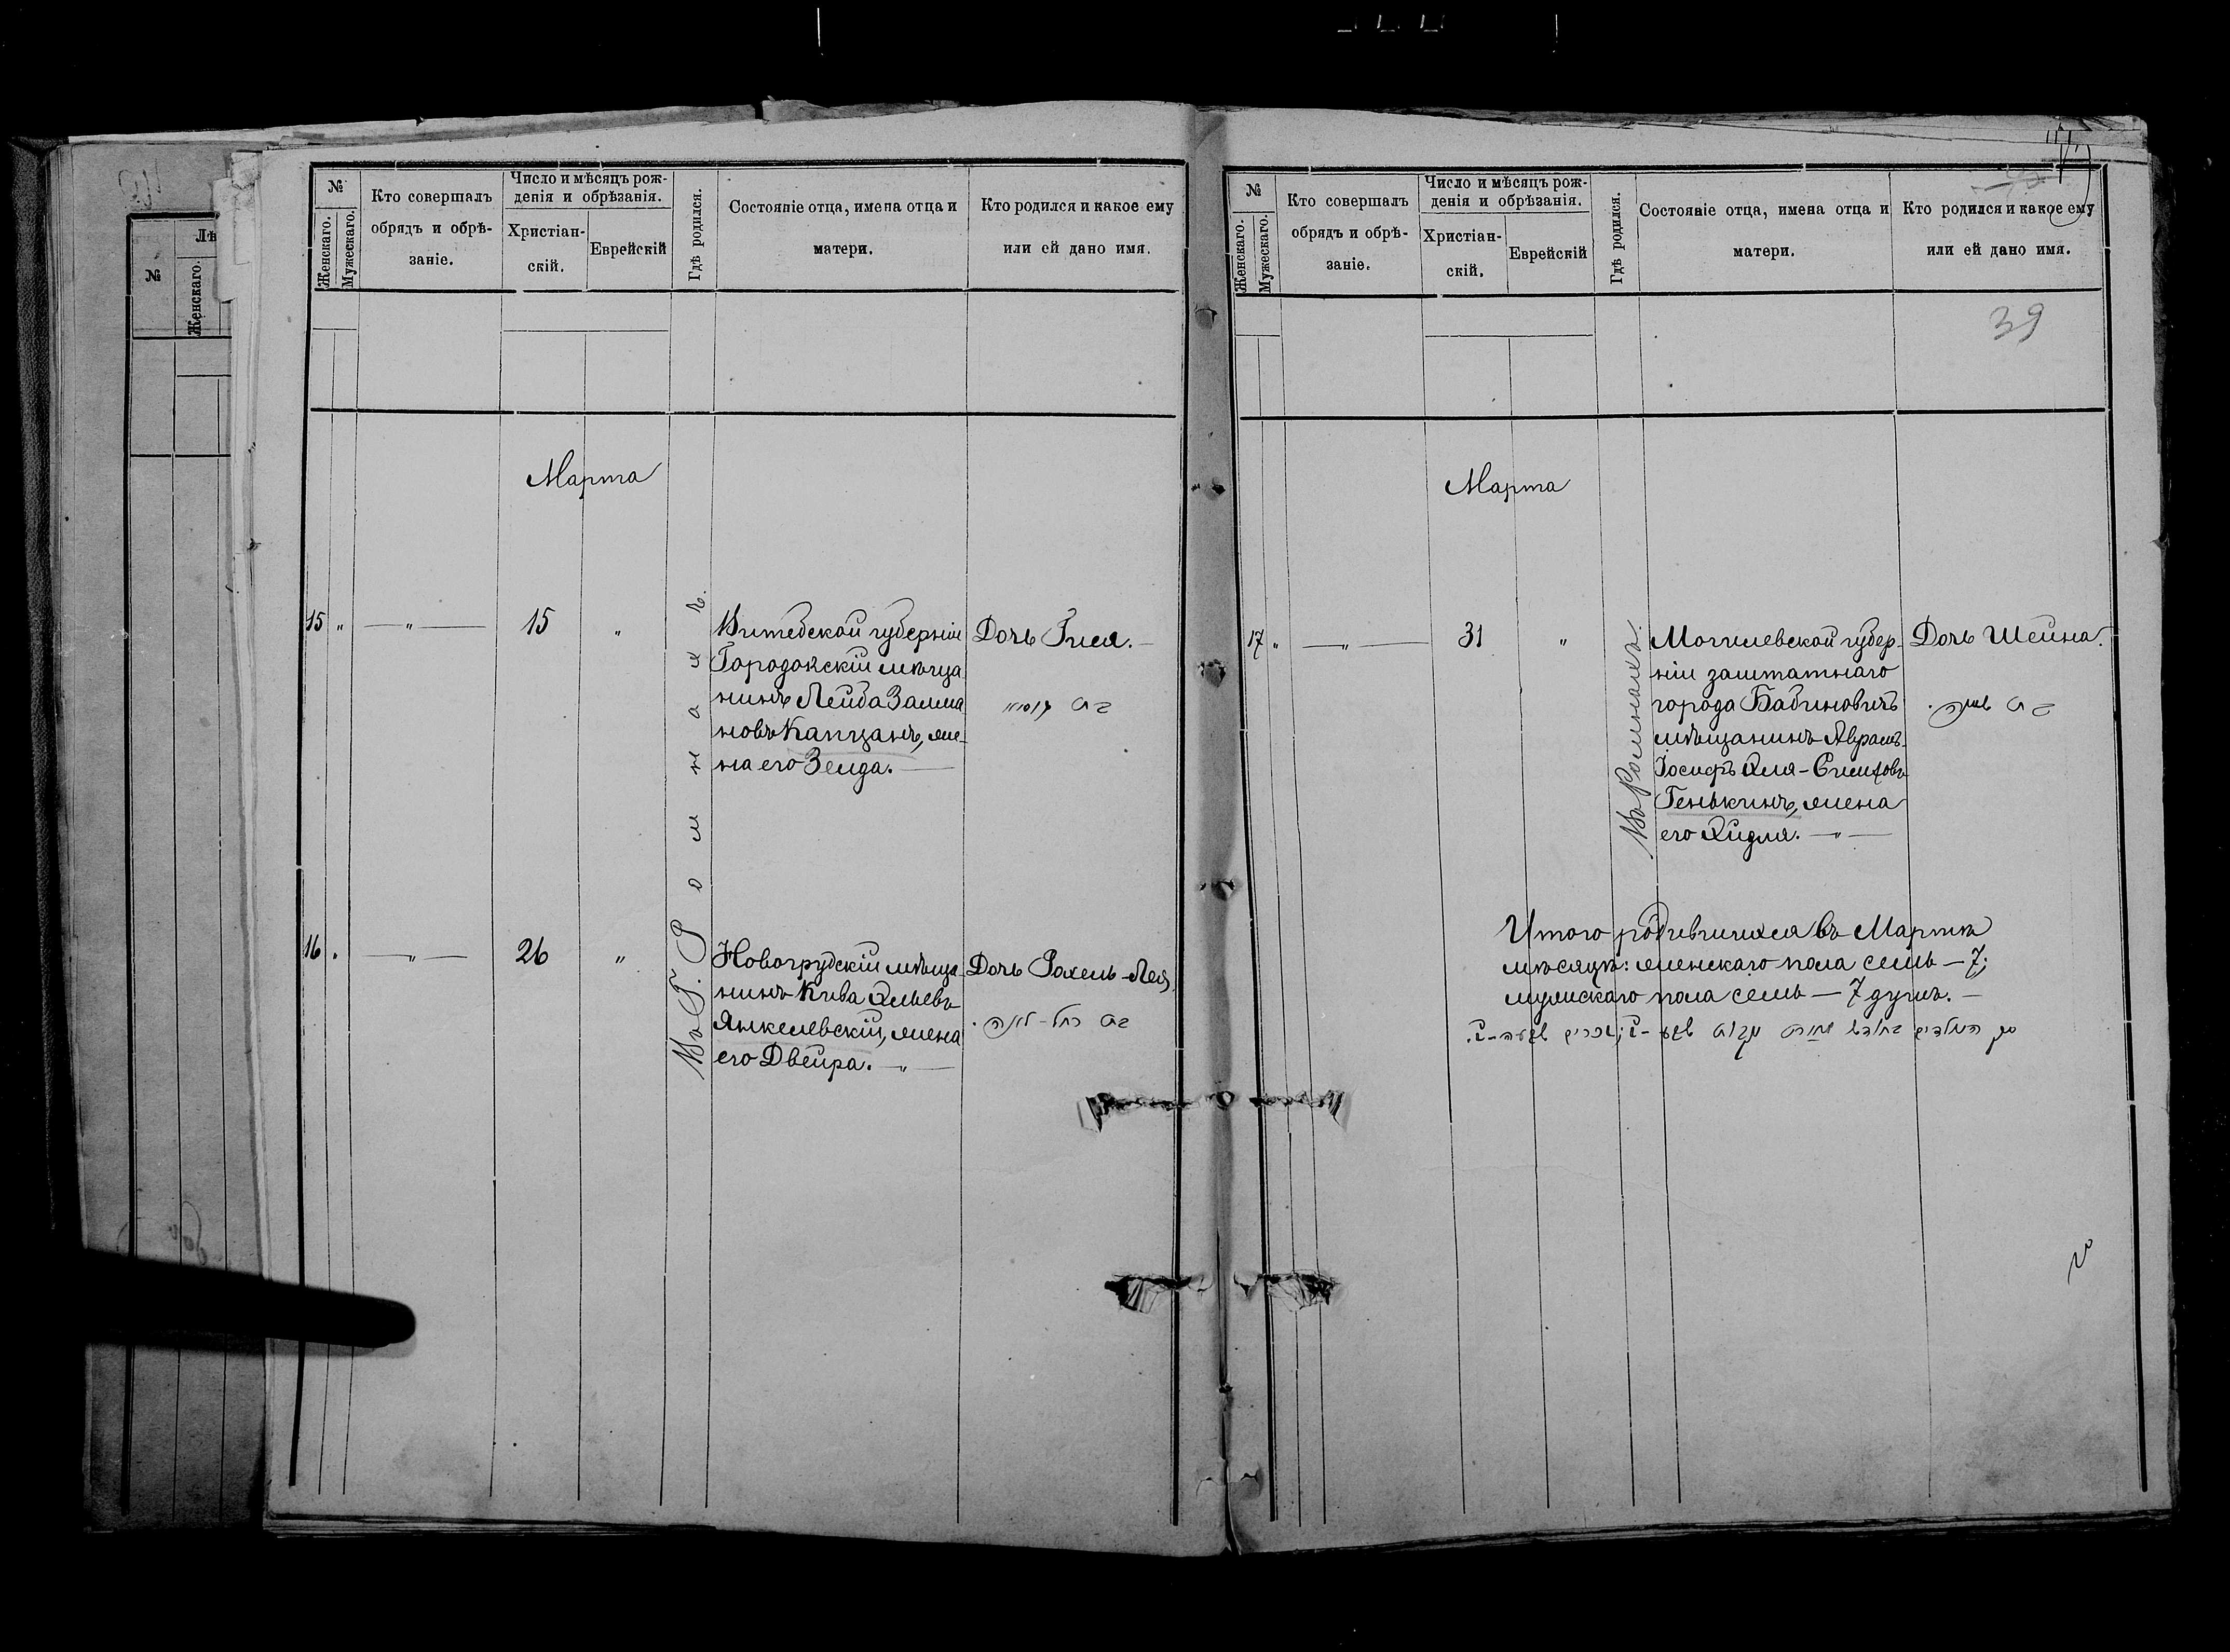 №
Женскаго.
Мужескаго.
Кто совершалъ
обрядъ и обрѣ-
заніе.
Число и мѣсяцъ рож-
денія и обрѣзанія.
Христіан-
скій.
Еврейскій
Гдѣ родился.
Состояніе отца, имена отца и
матери.
Кто родился и какое ему
или ей дано имя.
Марта
15 " — " — 15 "
Въ Г. Ромнахъ.
Витебской губерніи
Городокскій мѣща-
нинъ Лейба Залма-
новъ Капцанъ, же-
на его Зелда. —
Дочь Гися. —
16 " — " — 26 "
Новогрудскій мѣща-
нинъ Кива Ильевъ
Янкелевскій, жена
его Двейра. — " —
Дочь Рахель-Лея.
בת רחל-לאה.
№
Женскаго.
Мужескаго.
Кто совершалъ
обрядъ и обрѣ-
заніе.
Число и мѣсяцъ рож-
денія и обрѣзанія.
Христіан-
скій.
Еврейскій
Гдѣ родился.
Состояніе отца, имена отца и
матери.
Кто родился и какое ему
или ей дано имя.
39
Марта
17 " — " — 31 "
Въ Ромнахъ.
Могилевской губер-
ніи заштатнаго
города Бабиновичъ
мѣщанинъ Абрамъ-
Іосифъ
Генькинъ, жена
его
Дочь Шейна.
בת שיינה.
Итого родившихся въ Мартѣ
мѣсяцѣ: женскаго пола семь — 7;
мужскаго пола семь — 7 душъ. —
הנולדים בחודש
№
Женскаго.